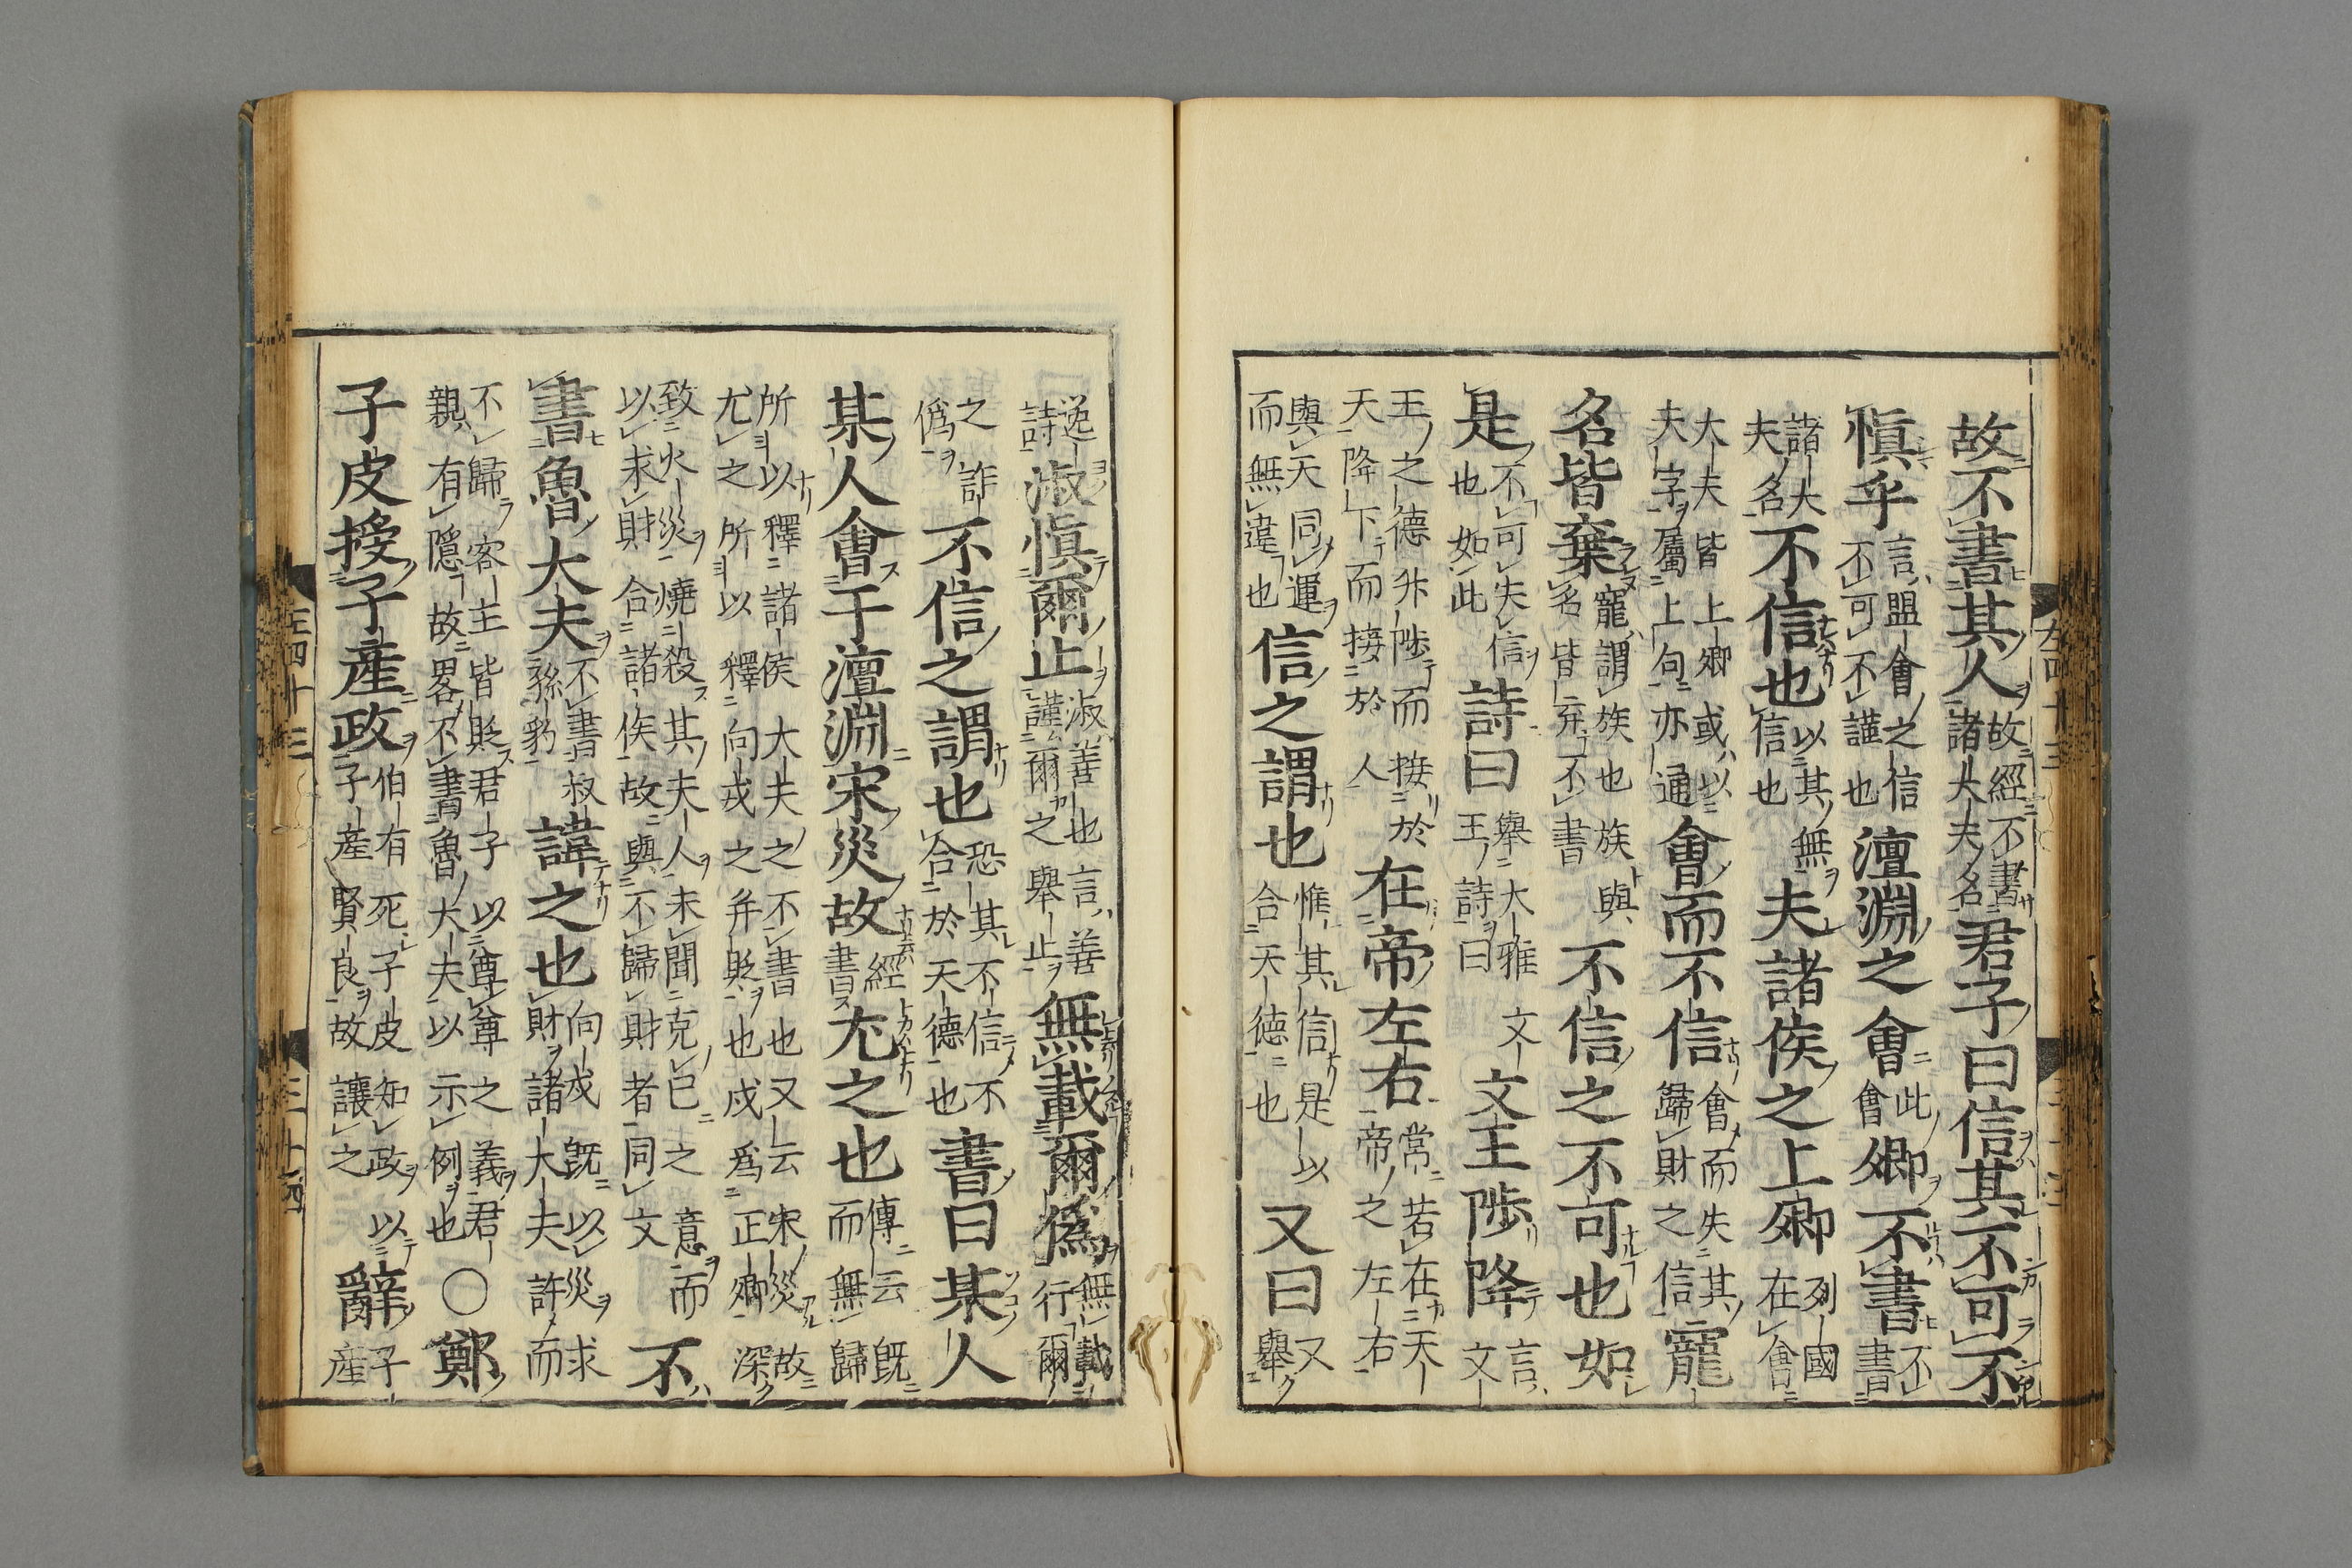 故不書其人故經不書諸大夫名君子曰信其不可不
愼乎言盟會之信不可不謹也澶淵之會此會卿不書不書
諸大夫名不信也以其無信也夫諸侯之上卿列國在會
大夫皆上卿或以夫字屬上句亦通會而不信會而失其歸財之信寵
名皆棄寵謂族也族與名皆弃不書不信之不可也如
是不可失信也如此詩曰舉大雅文王詩曰文王陟降言文
王之德升陟而接於天降下而接於人在帝左右常若在天帝之左右
與天同運而無違也信之謂也惟其信是以合天德也又曰又舉
逸詩淑愼爾止淑善也言善謹爾之舉止無載爾僞無載行爾
之詐僞不信之謂也恐其不信不合於天德也書曰某人
某人會于澶淵宋災故經書尤之也傳云旣而無歸
所以釋諸侯大夫之不書也又云宋災故尤之所以釋向戌之并貶也戌爲正卿深
致火災燒殺其夫人未聞克己之意而以求財合諸侯故與不歸財者同文不
書魯大夫不書叔孫豹諱之也向戌旣以災求財諸大夫許而
不歸客主皆貶君子以尊尊之義君親有隱故畧不書魯大夫以示例也〇鄭
子皮授子產政伯有死子皮知政以子產賢良故讓之辭子產
左四十三
三十四